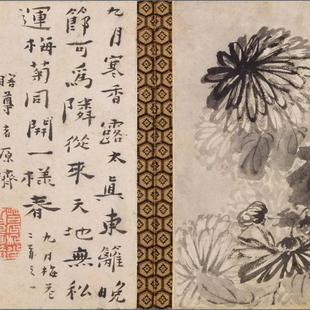 九月寒香露太真東籬晚
節可為隣從來天地無私
運梅菊同開一樣春
瞎尊者原濟
九月梅卷
二首之一